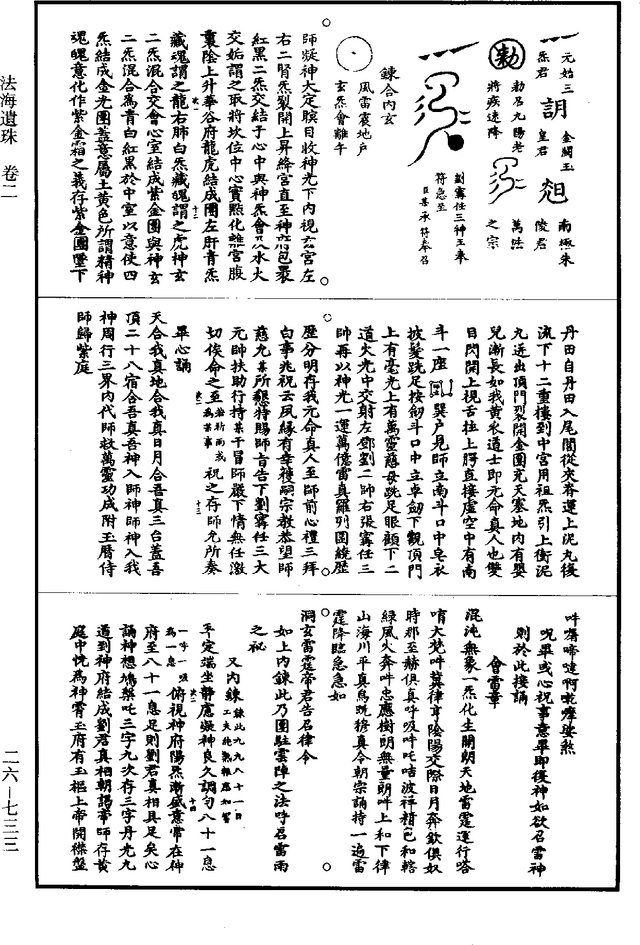 法海遺珠 卷二
二六—七三三
元始三
炁君
玥
金闕玉
皇君
南極朱
陵君
勅
勅召九陽老
將疾速降
萬法
之宗
劉甯任三神王奉
符急至
臣某承符奉召
鍊合內玄
風雷震地戶
玄炁會離午
師凝神大定瞑目收神光下內視玄宮左
右二腎炁裂開上昇絳宮直至神府包裹
紅黑二炁交結于心中與神炁會爲水火
交姤謂之取將坎位中心實點化離宮腹
裏陰上升華谷府龍虎結成團左肝青炁
藏魂謂之龍右肺白炁藏魄謂之虎神玄
二炁混合交會心室結成紫金團與神玄
二炁混合為青白紅黑於中室以意使四
炁結成金光團蓋意屬土黃色所謂精神
魂魄意化作紫金霜之義存紫金團墜下
丹田自丹田入尾閭從夾脊運上泥丸後
流下十二重樓到中宮用祖炁引上衝泥
九迸出頂門裂開金團充天塞地內有嬰
兒漸長如我黃衣道士即元命真人也雙
目閃開上視舌拄上腭直接虛空中有南
斗一座
巽戶見師立南斗口中皂衣
披髮跣足按劒斗口中立卓劒下觀頂門
上有毫光上有萬靈慈母跣足眼顧下二
道火光中交射左鄧劉二帥右張甯任三
帥再以神光一運萬億雷真羅列圍繞歷
歷分明存我元命真人至師前心禮三拜
白事兆祝云夙緣有幸獲嗣宗教恭望師
慈允某所懇特賜師旨告下劉甯任三大
元帥扶助行持某干冒師嚴下情無任激
切俟命之至
若祈雨或
為某事
祝之存師允所奏
畢心誦
天合我真地合我真日月合吾真三台蓋吾
頂二十八宿合吾真吾神入師神師神入我
神周行三界內代師救萬靈功成附玉曆侍
師歸紫庭
吽𠺁啼𠺝啊𠿒㘕娑煞
呪畢或心祝事意畢即復神如欲召雷神
則於此接誦
會雷章
混沌無象一炁化生開朗天地雷霆運行嗒
唷大梵吽冀律亨陰陽交際日月奔欽俱奴
時那至赫俱真呼吸吽吒咭波祥精色和轄
綠風火奔吽忠應樹明無量朗吽上和下律
山海川平真馬
真令朝宗誦持一遍雷
霆降臨急急如
洞玄雷霆帝君告召律令
如上內鍊此乃團駐雲陣之法呼召雷雨
之祕
又內鍊
鍊此九九八十一日
工夫純熟報應如響
平定端坐靜慮凝神良久調勻八十一息
一呼一吸
為一息
俯視神府陽炁漸盛意常在神
府至八十一息足則劉君真相具足矣心
誦神想鳩槃吒三字九次存三字丹光九
道到神府結成劉君真相朝謁帝師存黃
庭中恍為神霄玉府有玉樞上帝開襟盤